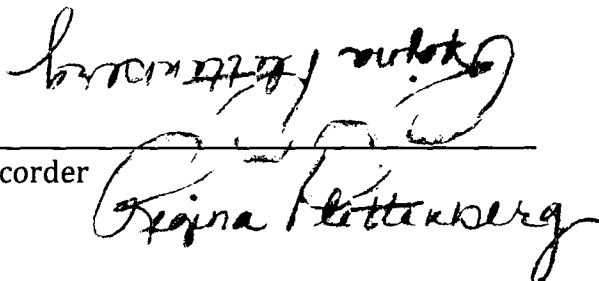 Regina Plettenberg
corder
Regina Plettenberg